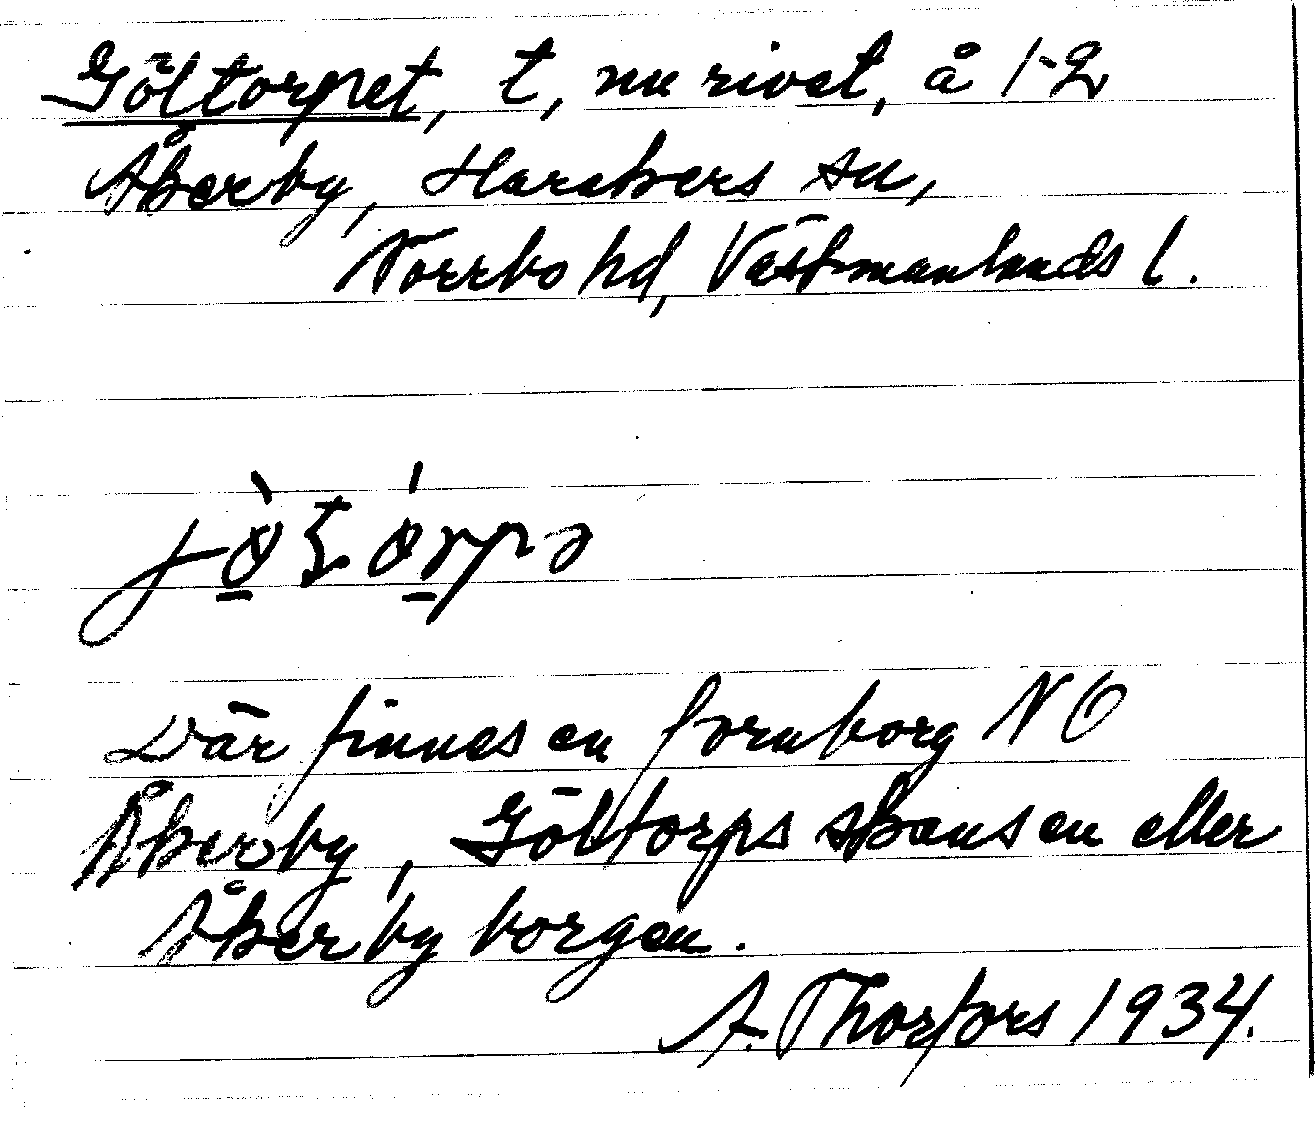 Göltorpet, t, nu rivet, å 1-2
Åkerby, Harakers sn,
Norrbo hd, Västmanlands l.
Där finnes en fornborg NO
Åkerby, Göltorpsskansen eller
Åkerbyborgen.
A. Thorfors 1934.